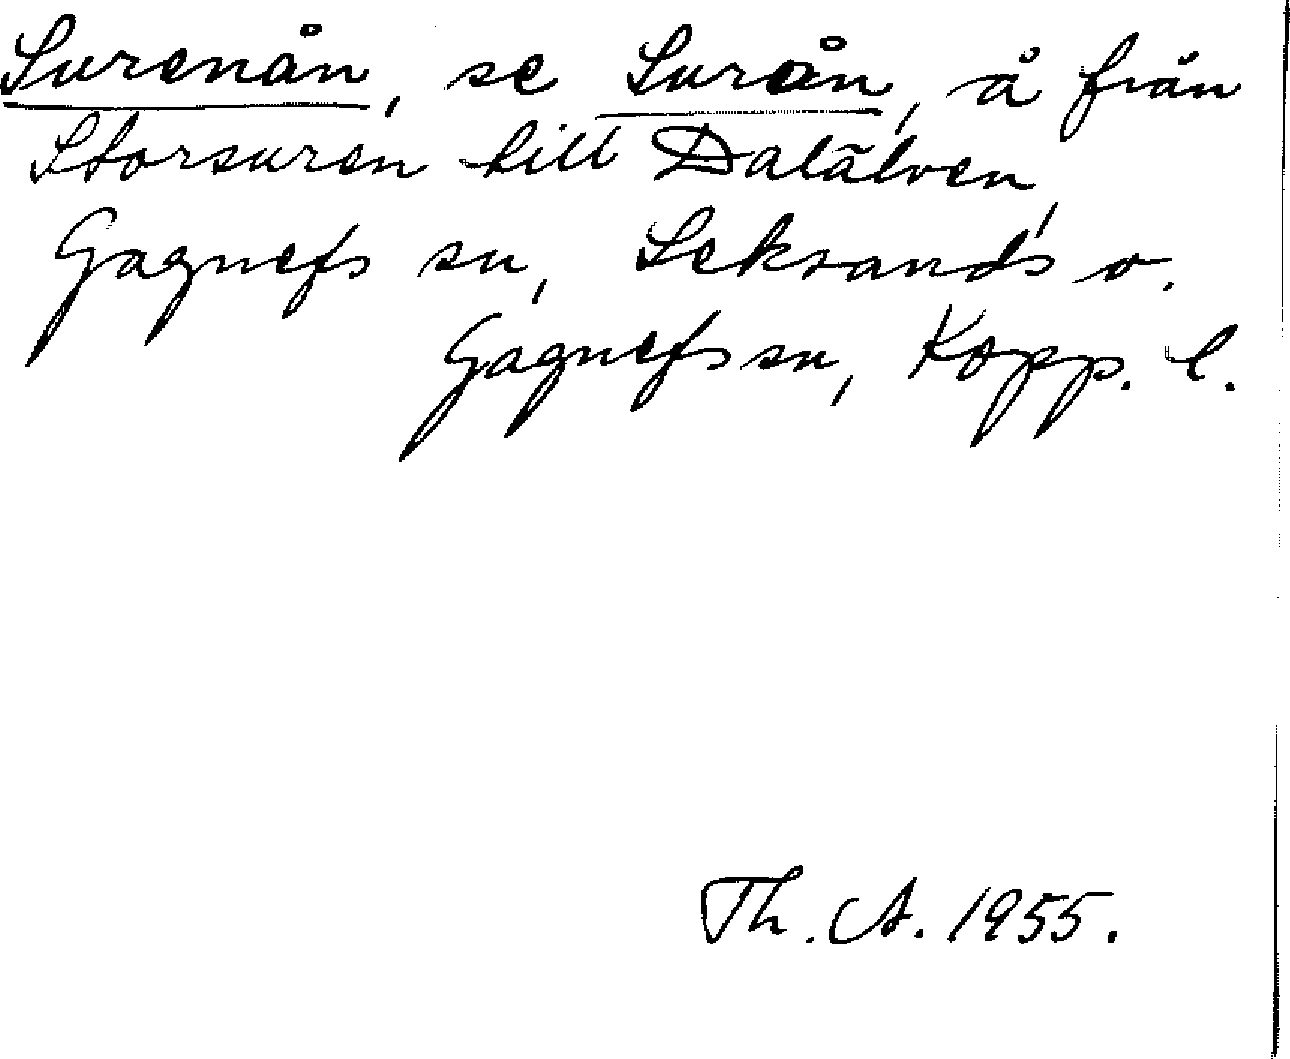 Surenån, se Surån, å från
Storsuren till Dalälven,
Gagnefs sn, Leksands o.
Gagnefs sn, Kopp. l.
Th. A. 1955.